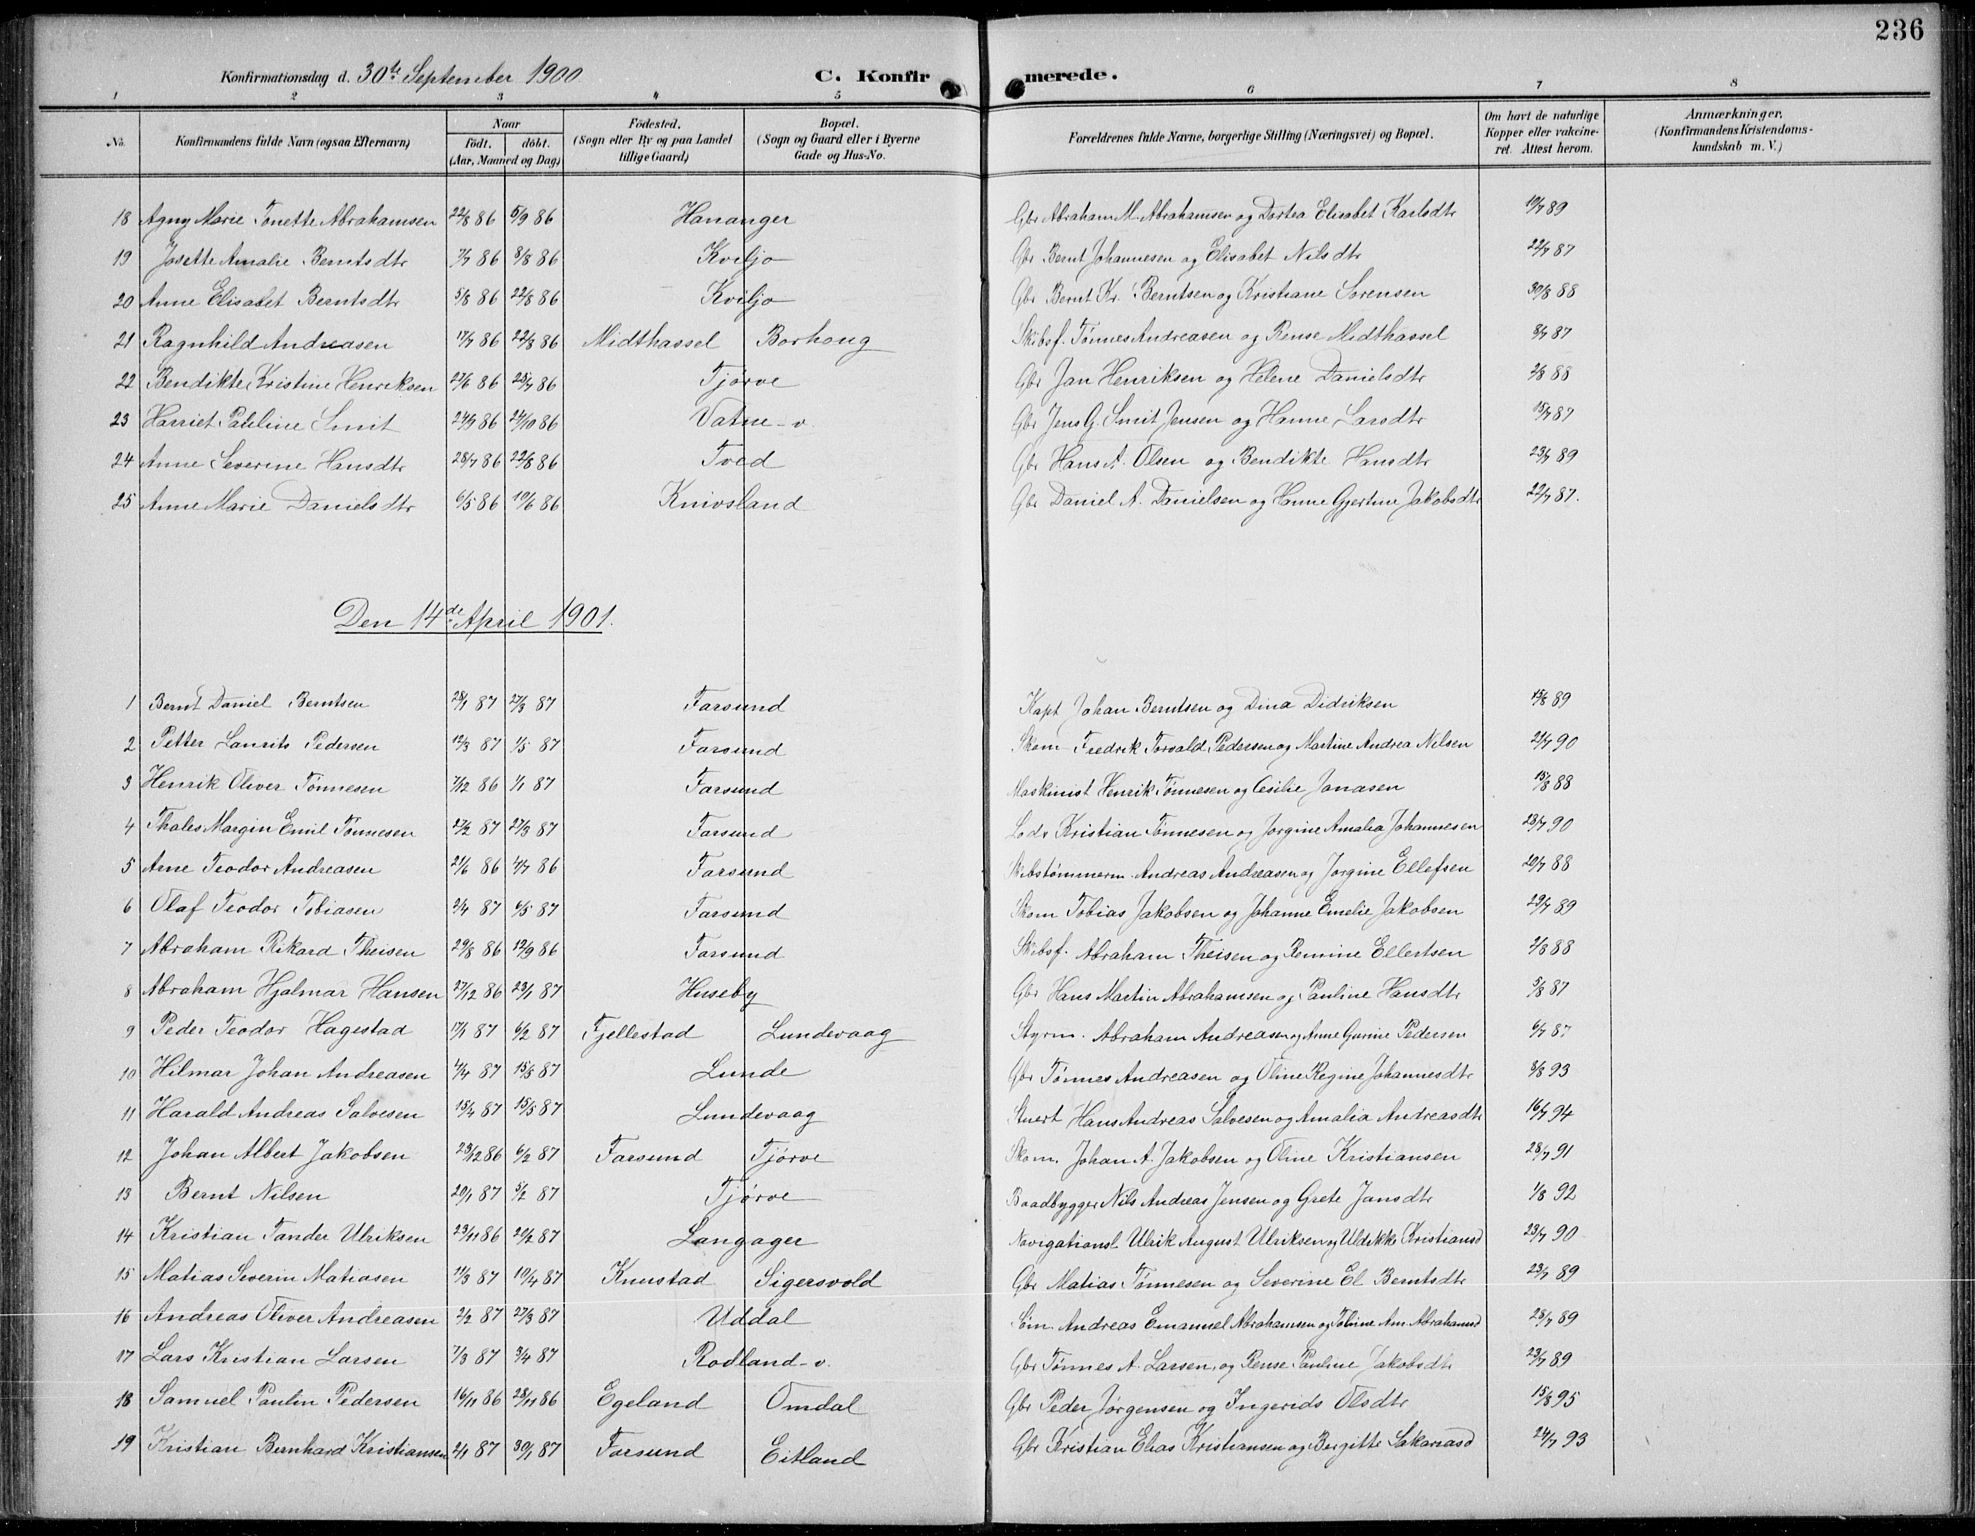 236
Konfirmationsdag d. 30te September 1900 C. Konfirmerede.
1 2 3 4 5 6 7 8
No. Konfirmandens fulde Navn (ogsaa Efternavn) Naar født. døbt. (Aar, Maaned og Dag) Fødested. (Sogn eller By og paa Landet tillige Gaard) Bopæl. (Sogn og Gaard eller i Byerne Gade og Hus-No. Forældrenes fulde Navne, borgerlige Stilling (Næringsvei) og Bopæl. Om havt de naturlige Kopper eller vakcineret. Attest herom. Anmærkninger. (Konfirmandens Kristendomskundskab m. V.)
18 Agny Marie Tonette Abrahamsen 22/8 86 5/9 86 Hananger Gbr Abraham M. Abrahamsen og Dortea Elisabet Karlsdtr 19/7 89
19 Josette Amalie Berntsdtr 7/7 86 8/8 86 Kviljo Gbr Bernt Johannesen og Elisabet Nilsdtr 22/7 87
20 Anne Elisabet Berntsdtr 5/8 86 22/8 86 Kviljo Gbr Bernt Kr. Berntsen og Kristiane Sørensen 30/8 88
21 Ragnhild Andreasen 17/7 86 22/8 86 Midthassel Borhoug Skibsf. Tønnes Andreasen og Rense Midthassel 8/7 87
22 Bendikte Kristine Henriksen 27/6 86 25/7 86 Tjørve Gbr Jan Henriksen og Helene Danielsdtr 2/8 88
23 Harriet Pauline Smit 24/9 86 24/10 86 Vatne - v. Gbr Jens G. Smit Jensen og Hanne Larsdtr 15/7 87
24 Anne Severine Hansdtr 28/7 86 22/8 86 Tved Gbr Hans A. Olsen og Bendikte Hansdtr 23/7 89
25 Anne Marie Danielsdtr 6/5 86 10/6 86 Knivsland Gbr Daniel A. Danielsen og Hanne Gjertine Jakobsdtr 22/7 87.
Den 14de April 1901.
1 Bernt Daniel Berntsen 28/1 87 27/3 87 Farsund Kapt Johan Berntsen og Dina Didriksen 15/8 89
2 Petter Laurits Pedersen 12/3 87 1/5 87 Farsund Skom Fredrik Torvald Pedersen og Martine Andrea Nilsen 21/7 90
3 Henrik Oliver Tønnesen 7/12 86 1/1 87 Farsund Maskinist Henrik Tønnesen og Cecilie Jonasen 15/8 88
4 Thales Margin Emil Tønnesen 27/2 87 27/3 87 Farsund Lods Kristian Tønnesen og Jorgine Amalia Johannesen 28/7 90
5 Arne Teodor Andreasen 21/6 86 4/7 86 Farsund Skibstømmerm. Andreas Andreasen og Jorgine Ellefsen 20/7 88
6 Olaf Teodor Tobiasen 2/4 87 6/5 87 Farsund Skom Tobias Jakobsen og Johanne Emelie Jakobsen 29/7 89
7 Abraham Rikard Theisen 29/8 86 12/9 86 Farsund Skibsf. Abraham Theisen og Remine Ellertsen 2/8 88
8 Abraham Hjalmar Hansen 27/12 86 23/1 87 Huseby Gbr Hans Martin Abrahamsen og Pauline Hansdtr 5/8 87
9 Peder Teodor Hagestad 17/1 87 6/2 87 Fjellestad Lundevaag Styrm. Abraham Andreasen og Anne Gurine Pedersen 6/7 87
10 Hilmar Johan Andreasen 4/4 87 15/5 87 Lunde Gbr Tønnes Andreasen og Oline Regine Johannesdtr 8/8 93
11 Harald Andreas Salvesen 15/4 87 15/5 87 Lundevaag Stuert Hans Andreas Salvesen og Amalia Andreasdtr 16/7 94
12 Johan Albert Jakobsen 29/12 86 6/2 87 Farsund Tjørve Skom. Johan A. Jakobsen og Oline Kristiansen 28/7 91
13 Bernt Nilsen 20/1 87 5/2 87 Tjørve Baadbygger Nils Andreas Jensen og Grete Jansdtr 1/8 92
14 Kristian Tander Ulriksen 23/11 86 20/2 87 Langager Navigationsl Ulrik August Ulriksen og Uldikke Kristiansd 23/7 90
15 Matias Severin Matiasen 11/3 87 10/4 87 Knustad Sigersvold Gbr Matias Tønnesen og Severine El. Berntsdtr 23/7 89
16 Andreas Oliver Andreasen 2/2 87 27/3 87 Uddal Søm. Andreas Emanuel Abrahamsen og Tobine Am. Abrahamsd 25/7 89
17 Lars Kristian Larsen 7/3 87 3/4 87 Rødland - v. Gbr Tønnes A. Larsen, og Rense Pauline Jakobsdtr 23/7 89
18 Samuel Paulin Pedersen 16/11 86 28/11 86 Egeland Omdal Gbr Peder Jørgensen og Ingerids Olsdtr 15/8 95
19 Kristian Bernhard Kristiansen 2/1 87 30/1 87 Farsund Eitland Gbr Kristian Elias Kristiansen og Bergitte Sakariasd 24/7 93